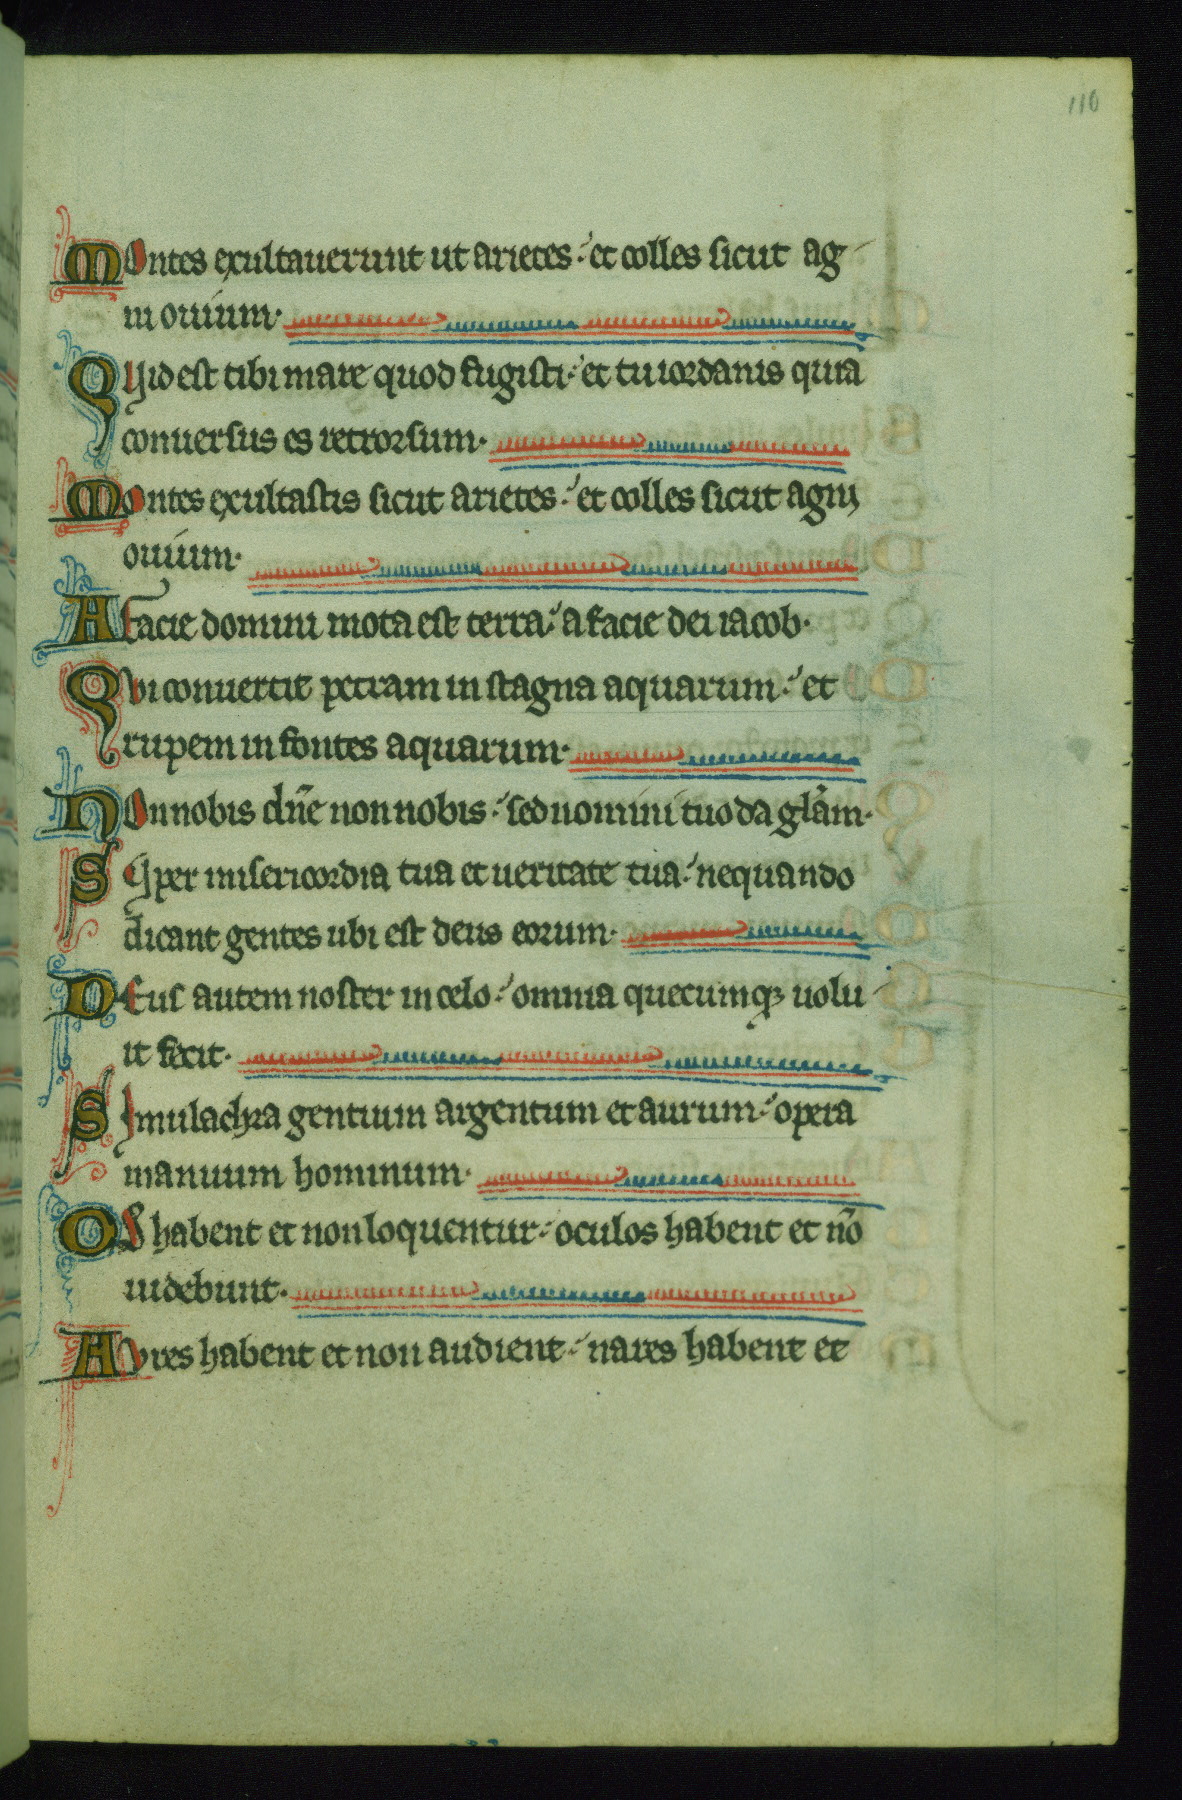 110
Montes exultauerunt ut arietes: et colles sicut ag-
ni ouium.
Quid est tibi mare quod fugisti: et tu iordanis quia
conuersus es retrorsum.
Montes exultastis sicut arietes: et colles sicut agni
ouium.
A facie domini mota est terra: a facie dei iacob.
Qui conuertit petram in stagna aquarum: et
rupem in fontes aquarum.
Non nobis dñe non nobis: sed nomini tuo da glãm.
Super misericordia tua et ueritate tua: nequando
dicant gentes ubi est deus eorum.
Deus autem noster in celo: omnia quecumqꝫ uolu-
it fecit.
Simulachra gentium argentum et aurum: opera
manuum hominum.
Os habent et non loquentur: oculos habent et nõ
uidebunt.
Aures habent et non audient: nares habent et